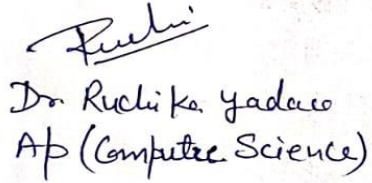 Ruchi
Dr. Ruchika Yadav
AP (Computer Science)